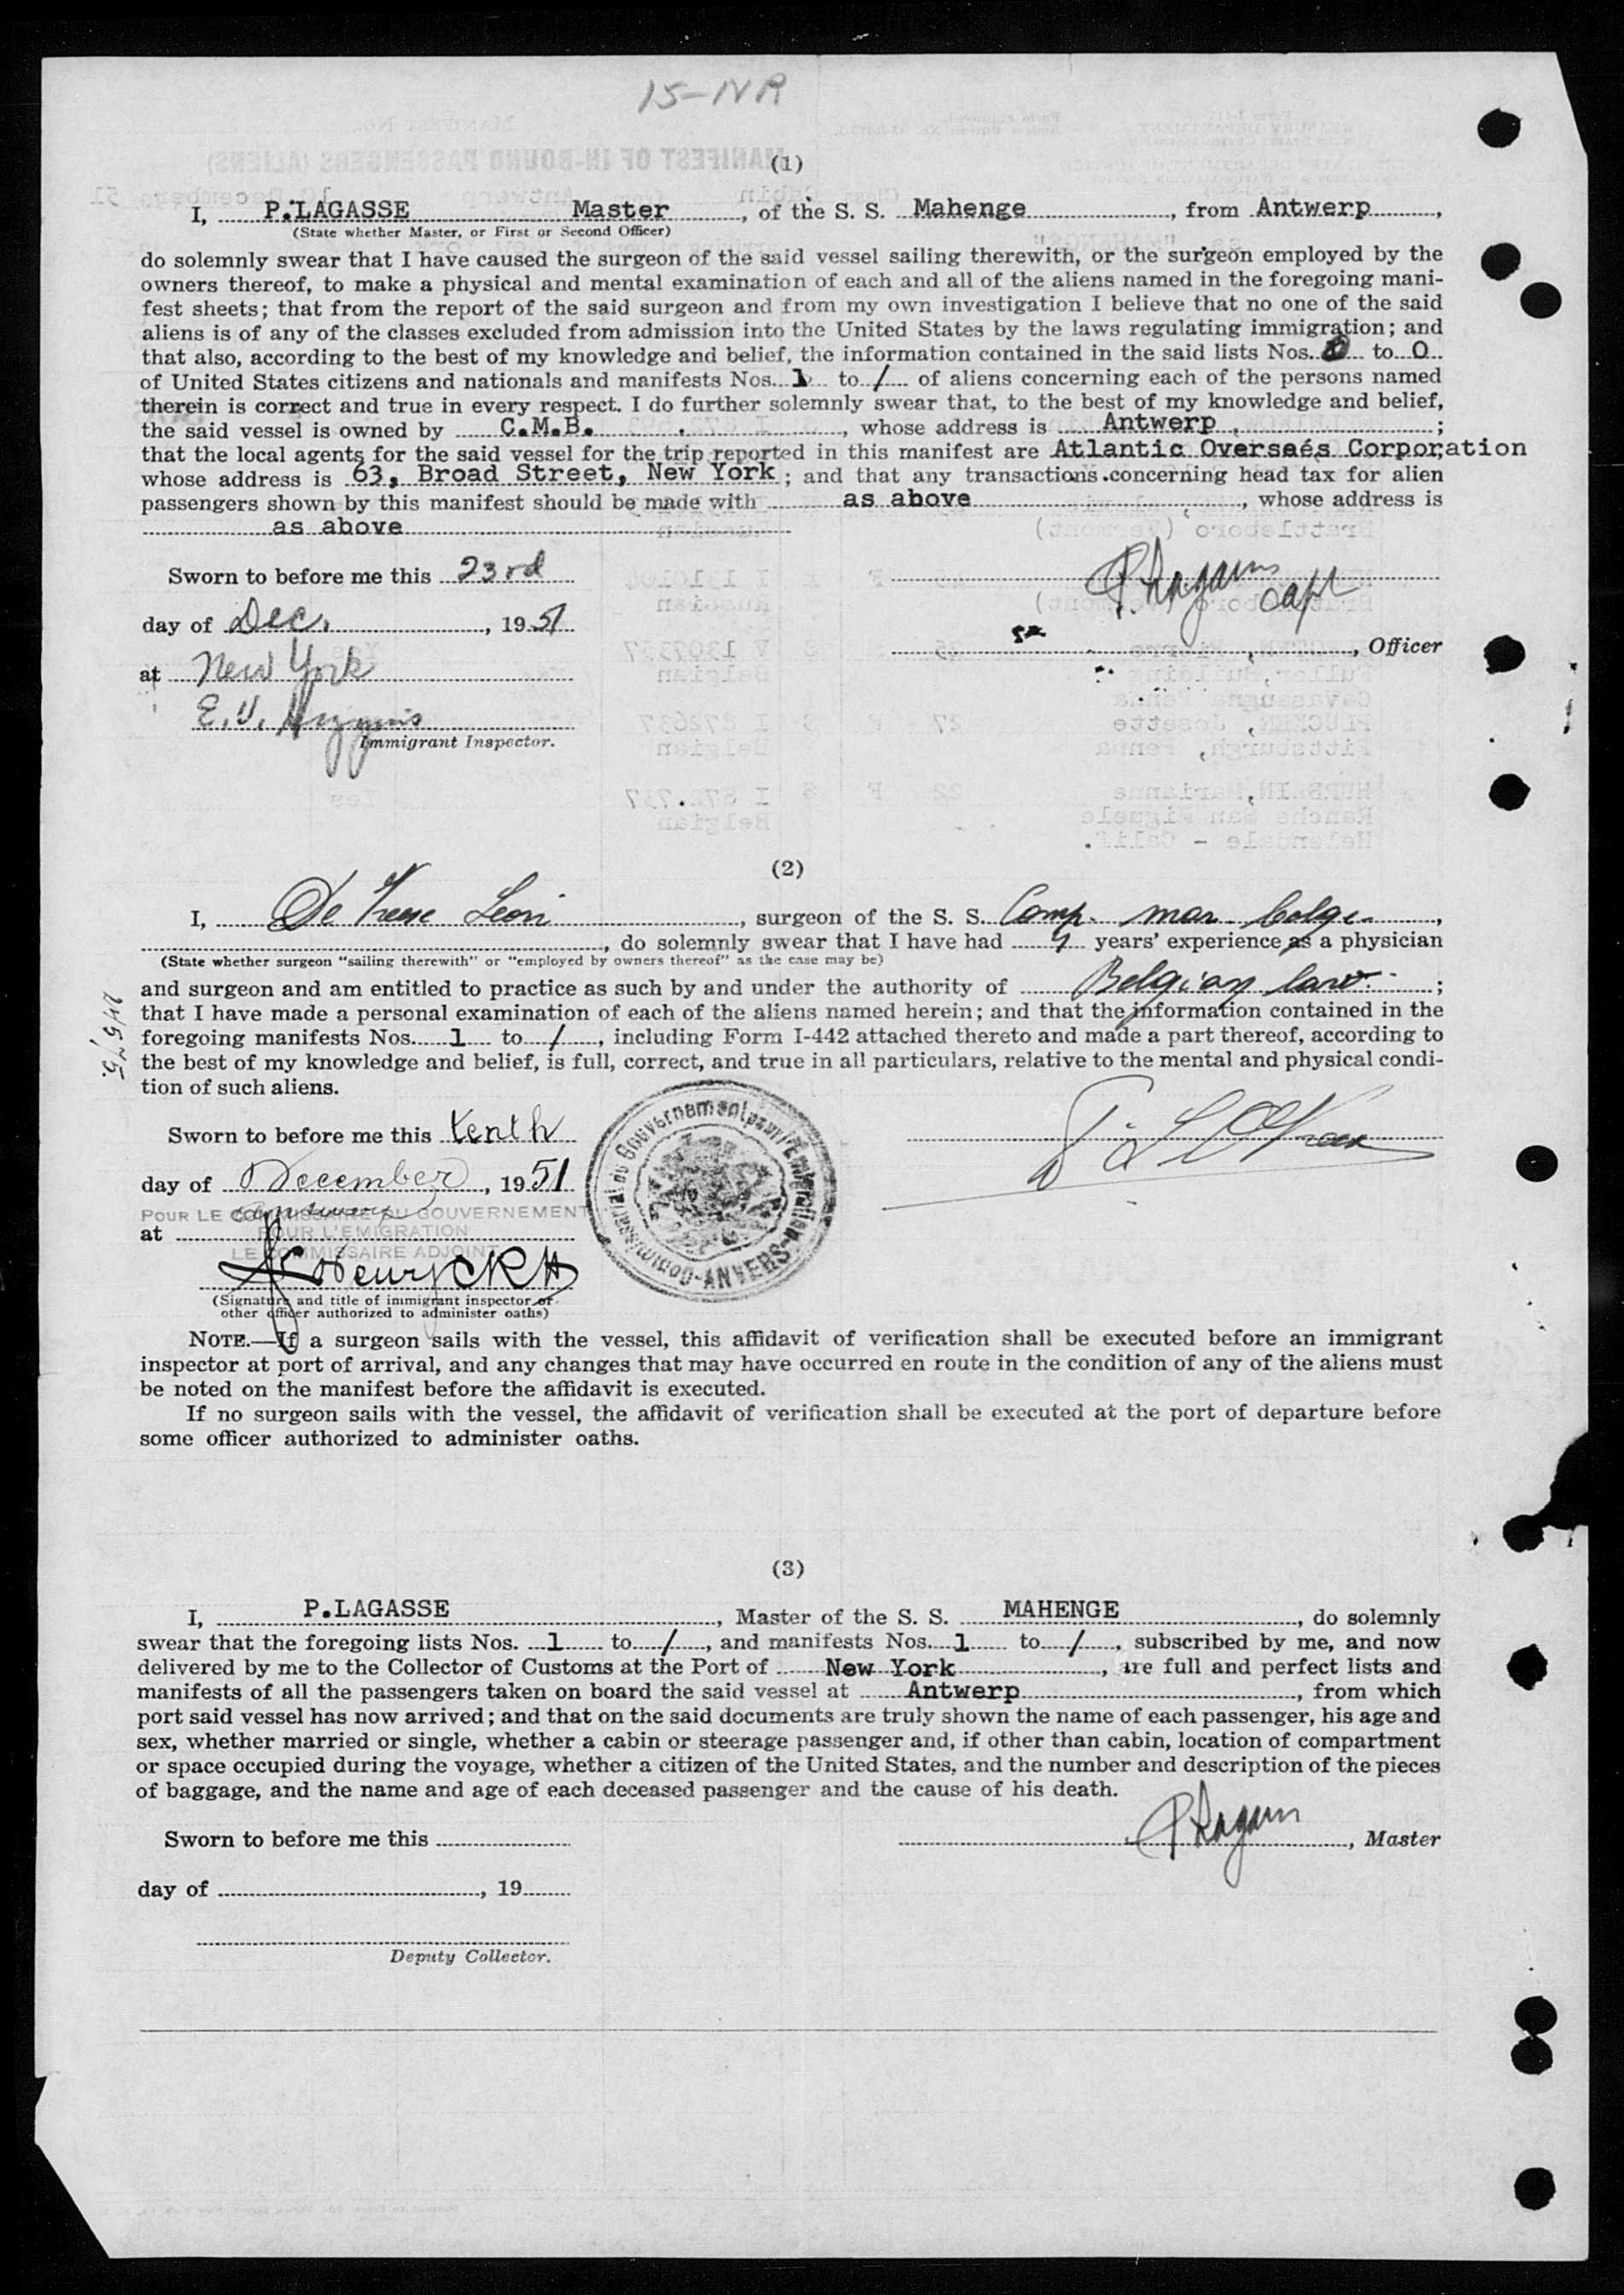 15-NR
(1)
I, P.LAGASSE Master, of the S. S. Mahenge, from Antwerp,
(State whether Master, or First or Second Officer)
do solemnly swear that I have caused the surgeon of the said vessel sailing therewith, or the surgeon employed by the
owners thereof, to make a physical and mental examination of each and all of the aliens named in the foregoing mani-
fest sheets; that from the report of the said surgeon and from my own investigation I believe that no one of the said
aliens is of any of the classes excluded from admission into the United States by the laws regulating immigration; and
that also, according to the best of my knowledge and belief, the information contained in the said lists Nos. 0 to 0
of United States citizens and nationals and manifests Nos. 1 to / of aliens concerning each of the persons named
therein is correct and true in every respect. I do further solemnly swear that, to the best of my knowledge and belief,
the said vessel is owned by C.M.B., whose address is Antwerp;
that the local agents for the said vessel for the trip reported in this manifest are Atlantic Overseés Corporation
whose address is 63, Broad Street, New York; and that any transactions concerning head tax for alien
passengers shown by this manifest should be made with as above, whose address is
as above
Sworn to before me this 23rd
day of Dec., 1951
Capt
, Officer
at New York
Immigrant Inspector.
(2)
I, De Leon, surgeon of the S. S. Comp. mar. belge,
, do solemnly swear that I have had years' experience as a physician
(State whether surgeon "sailing therewith" or "employed by owners thereof" as the case may be)
and surgeon and am entitled to practice as such by and under the authority of Belgian law;
that I have made a personal examination of each of the aliens named herein; and that the information contained in the
foregoing manifests Nos. 1 to /, including Form I-442 attached thereto and made a part thereof, according to
the best of my knowledge and belief, is full, correct, and true in all particulars, relative to the mental and physical condi-
tion of such aliens.
Sworn to before me this tenth
day of December, 1951
POUR LE COMMISSAIRE DU GOUVERNEMENT
POUR L'EMIGRATION
at
LE COMMISSAIRE ADJOINT
Commissariat du Gouvernement pour l'Emigration-ANVERS-
(Signature and title of immigrant inspector or
other officer authorized to administer oaths)
NOTE.—If a surgeon sails with the vessel, this affidavit of verification shall be executed before an immigrant
inspector at port of arrival, and any changes that may have occurred en route in the condition of any of the aliens must
be noted on the manifest before the affidavit is executed.
If no surgeon sails with the vessel, the affidavit of verification shall be executed at the port of departure before
some officer authorized to administer oaths.
(3)
I, P.LAGASSE, Master of the S. S. MAHENGE, do solemnly
swear that the foregoing lists Nos. 1 to /, and manifests Nos. 1 to /, subscribed by me, and now
delivered by me to the Collector of Customs at the Port of New York, are full and perfect lists and
manifests of all the passengers taken on board the said vessel at Antwerp, from which
port said vessel has now arrived; and that on the said documents are truly shown the name of each passenger, his age and
sex, whether married or single, whether a cabin or steerage passenger and, if other than cabin, location of compartment
or space occupied during the voyage, whether a citizen of the United States, and the number and description of the pieces
of baggage, and the name and age of each deceased passenger and the cause of his death.
Sworn to before me this
, Master
day of , 19
Deputy Collector.